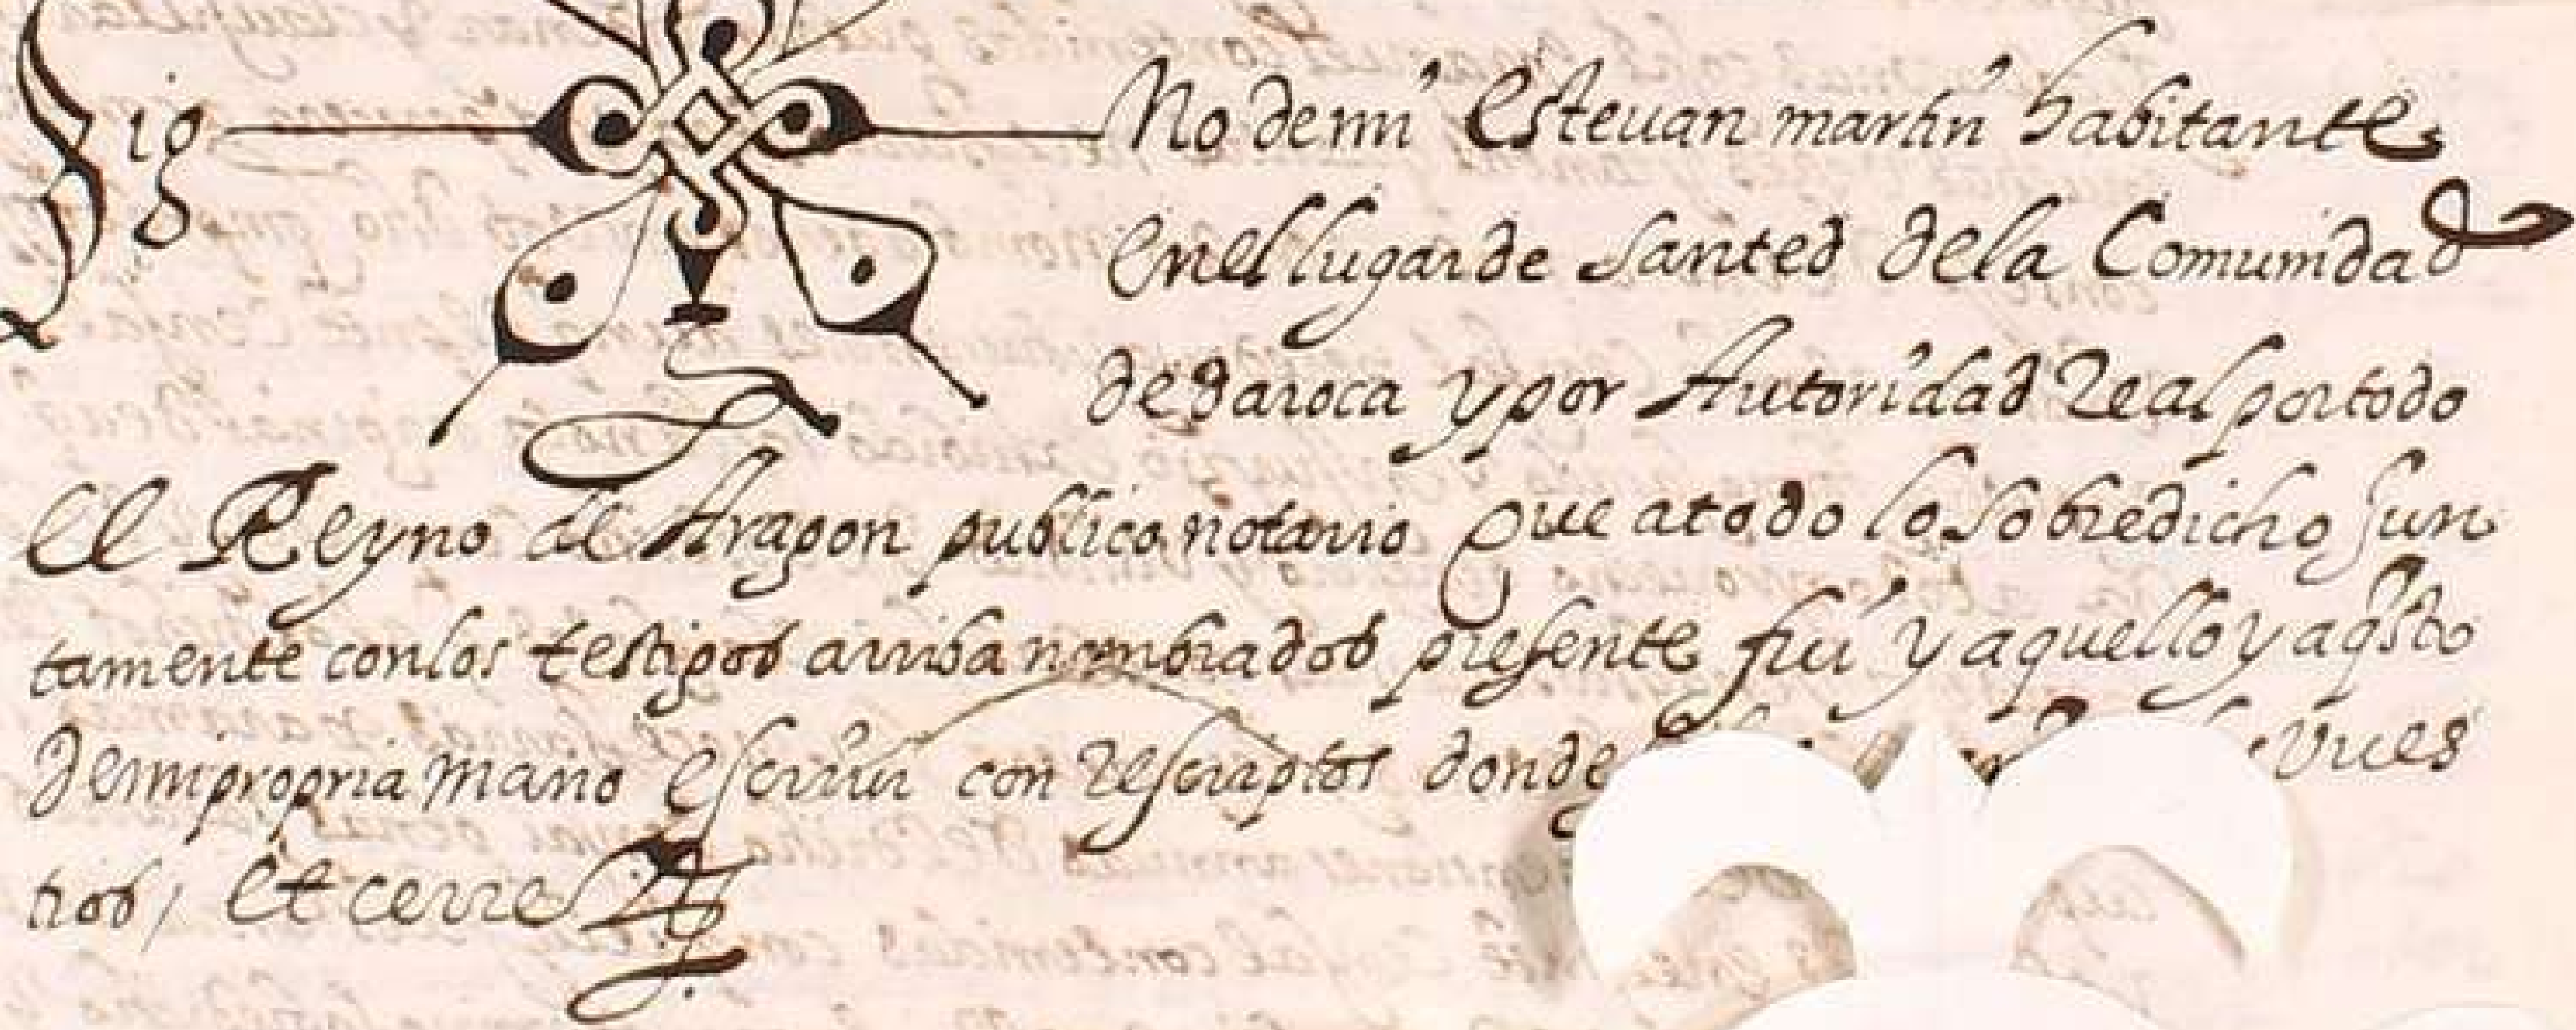 Sig No de mi Esteuan martin habitante
En el lugar de Santed de la Comunidad
de daroca y por Autoridad Real por todo
El Reyno de Aragon publico notario Que a todo lo sobredicho Jun
tamente con los testigos arriba nombrados presente fui y aquello y aqsto
de mi propria mano escriui con rescriptos donde vues
tros, Et cerre